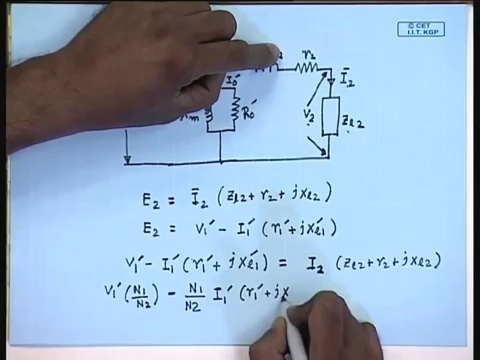 © CET
I.I.T. KGP
r₂
I₀′
Ī₂
R₀′
V₂
Z_{l2}
E₂ = Ī₂ (Z_{l2} + r₂ + jx_{l2})
E₂ = V₁′ − I₁′ (r₁′ + jx_{l1}′)
V₁′ − I₁′ (r₁′ + jx_{l1}′) = I₂ (Z_{l2} + r₂ + jx_{l2})
V₁′ (N₁/N₂) − N₁/N₂ I₁′ (r₁′ + jx